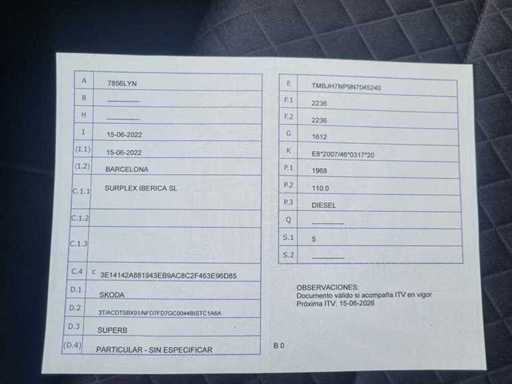 A 7856LYN
B
H
I 15-06-2022
(I.1) 15-06-2022
(I.2) BARCELONA
C.1.1 SURPLEX IBERICA SL
C.1.2
C.1.3
C.4 C 3E14142A881943EB9AC8C2F463E96D85
D.1 SKODA
D.2 3T/ACDTSBX01/NFD7FD7GC0044BISTC1A6A
D.3 SUPERB
(D.4) PARTICULAR - SIN ESPECIFICAR
E TMBJH7NP9N7045240
F.1 2236
F.2 2236
G 1612
K E8*2007/46*0317*20
P.1 1968
P.2 110.0
P.3 DIESEL
Q
S.1 5
S.2
OBSERVACIONES:
Documento válido si acompaña ITV en vigor
Próxima ITV: 15-06-2026
B 0